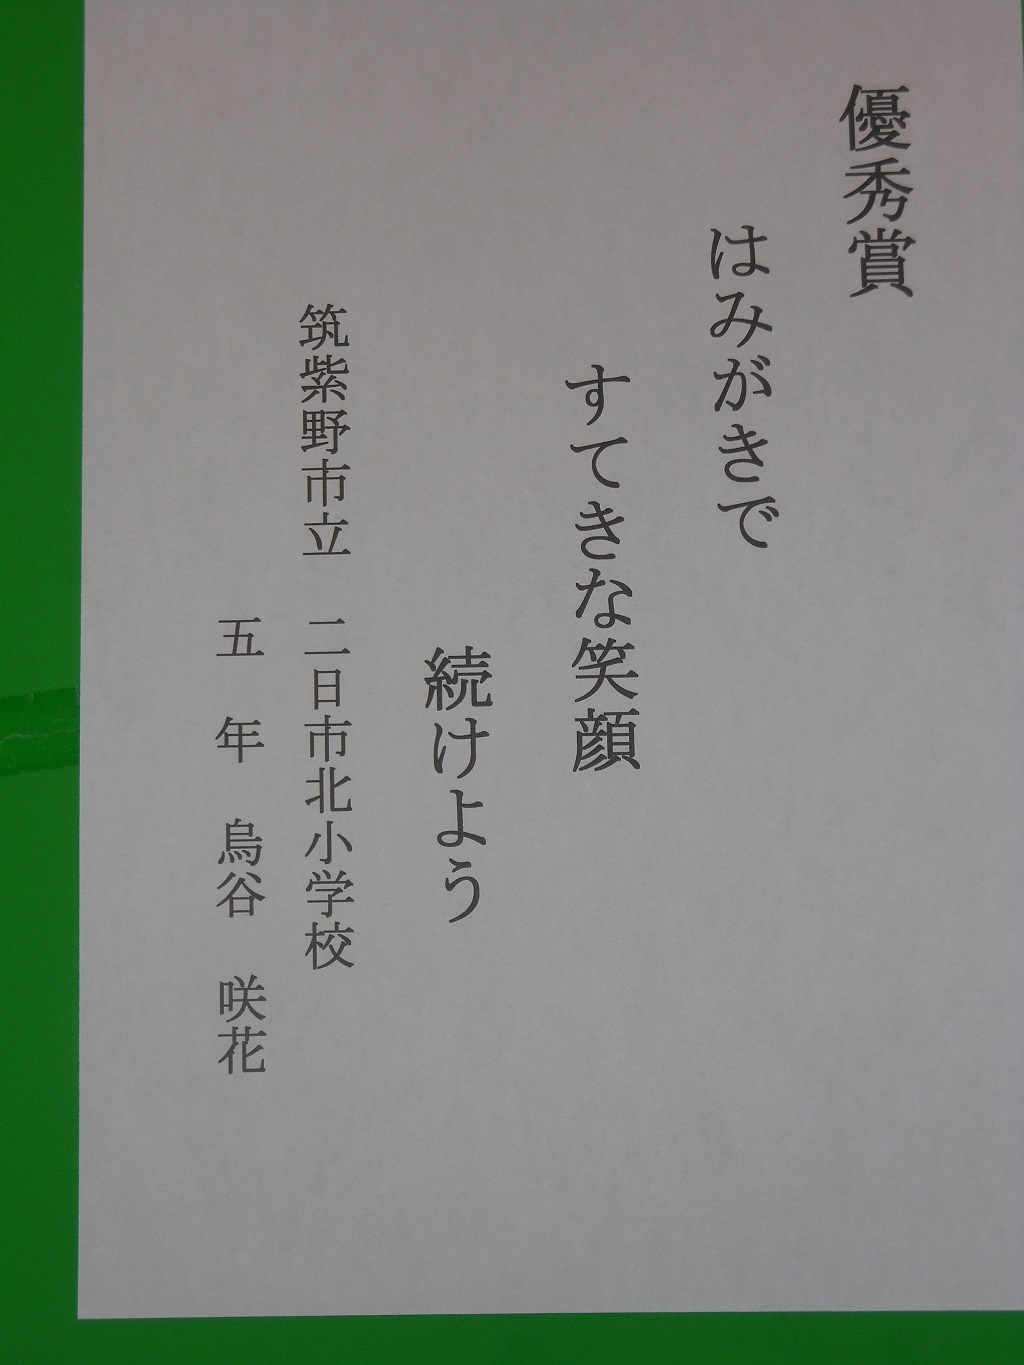 優秀賞
はみがきで
すてきな笑顔
続けよう
筑紫野市立　二日市北小学校
五　年　烏谷　咲花